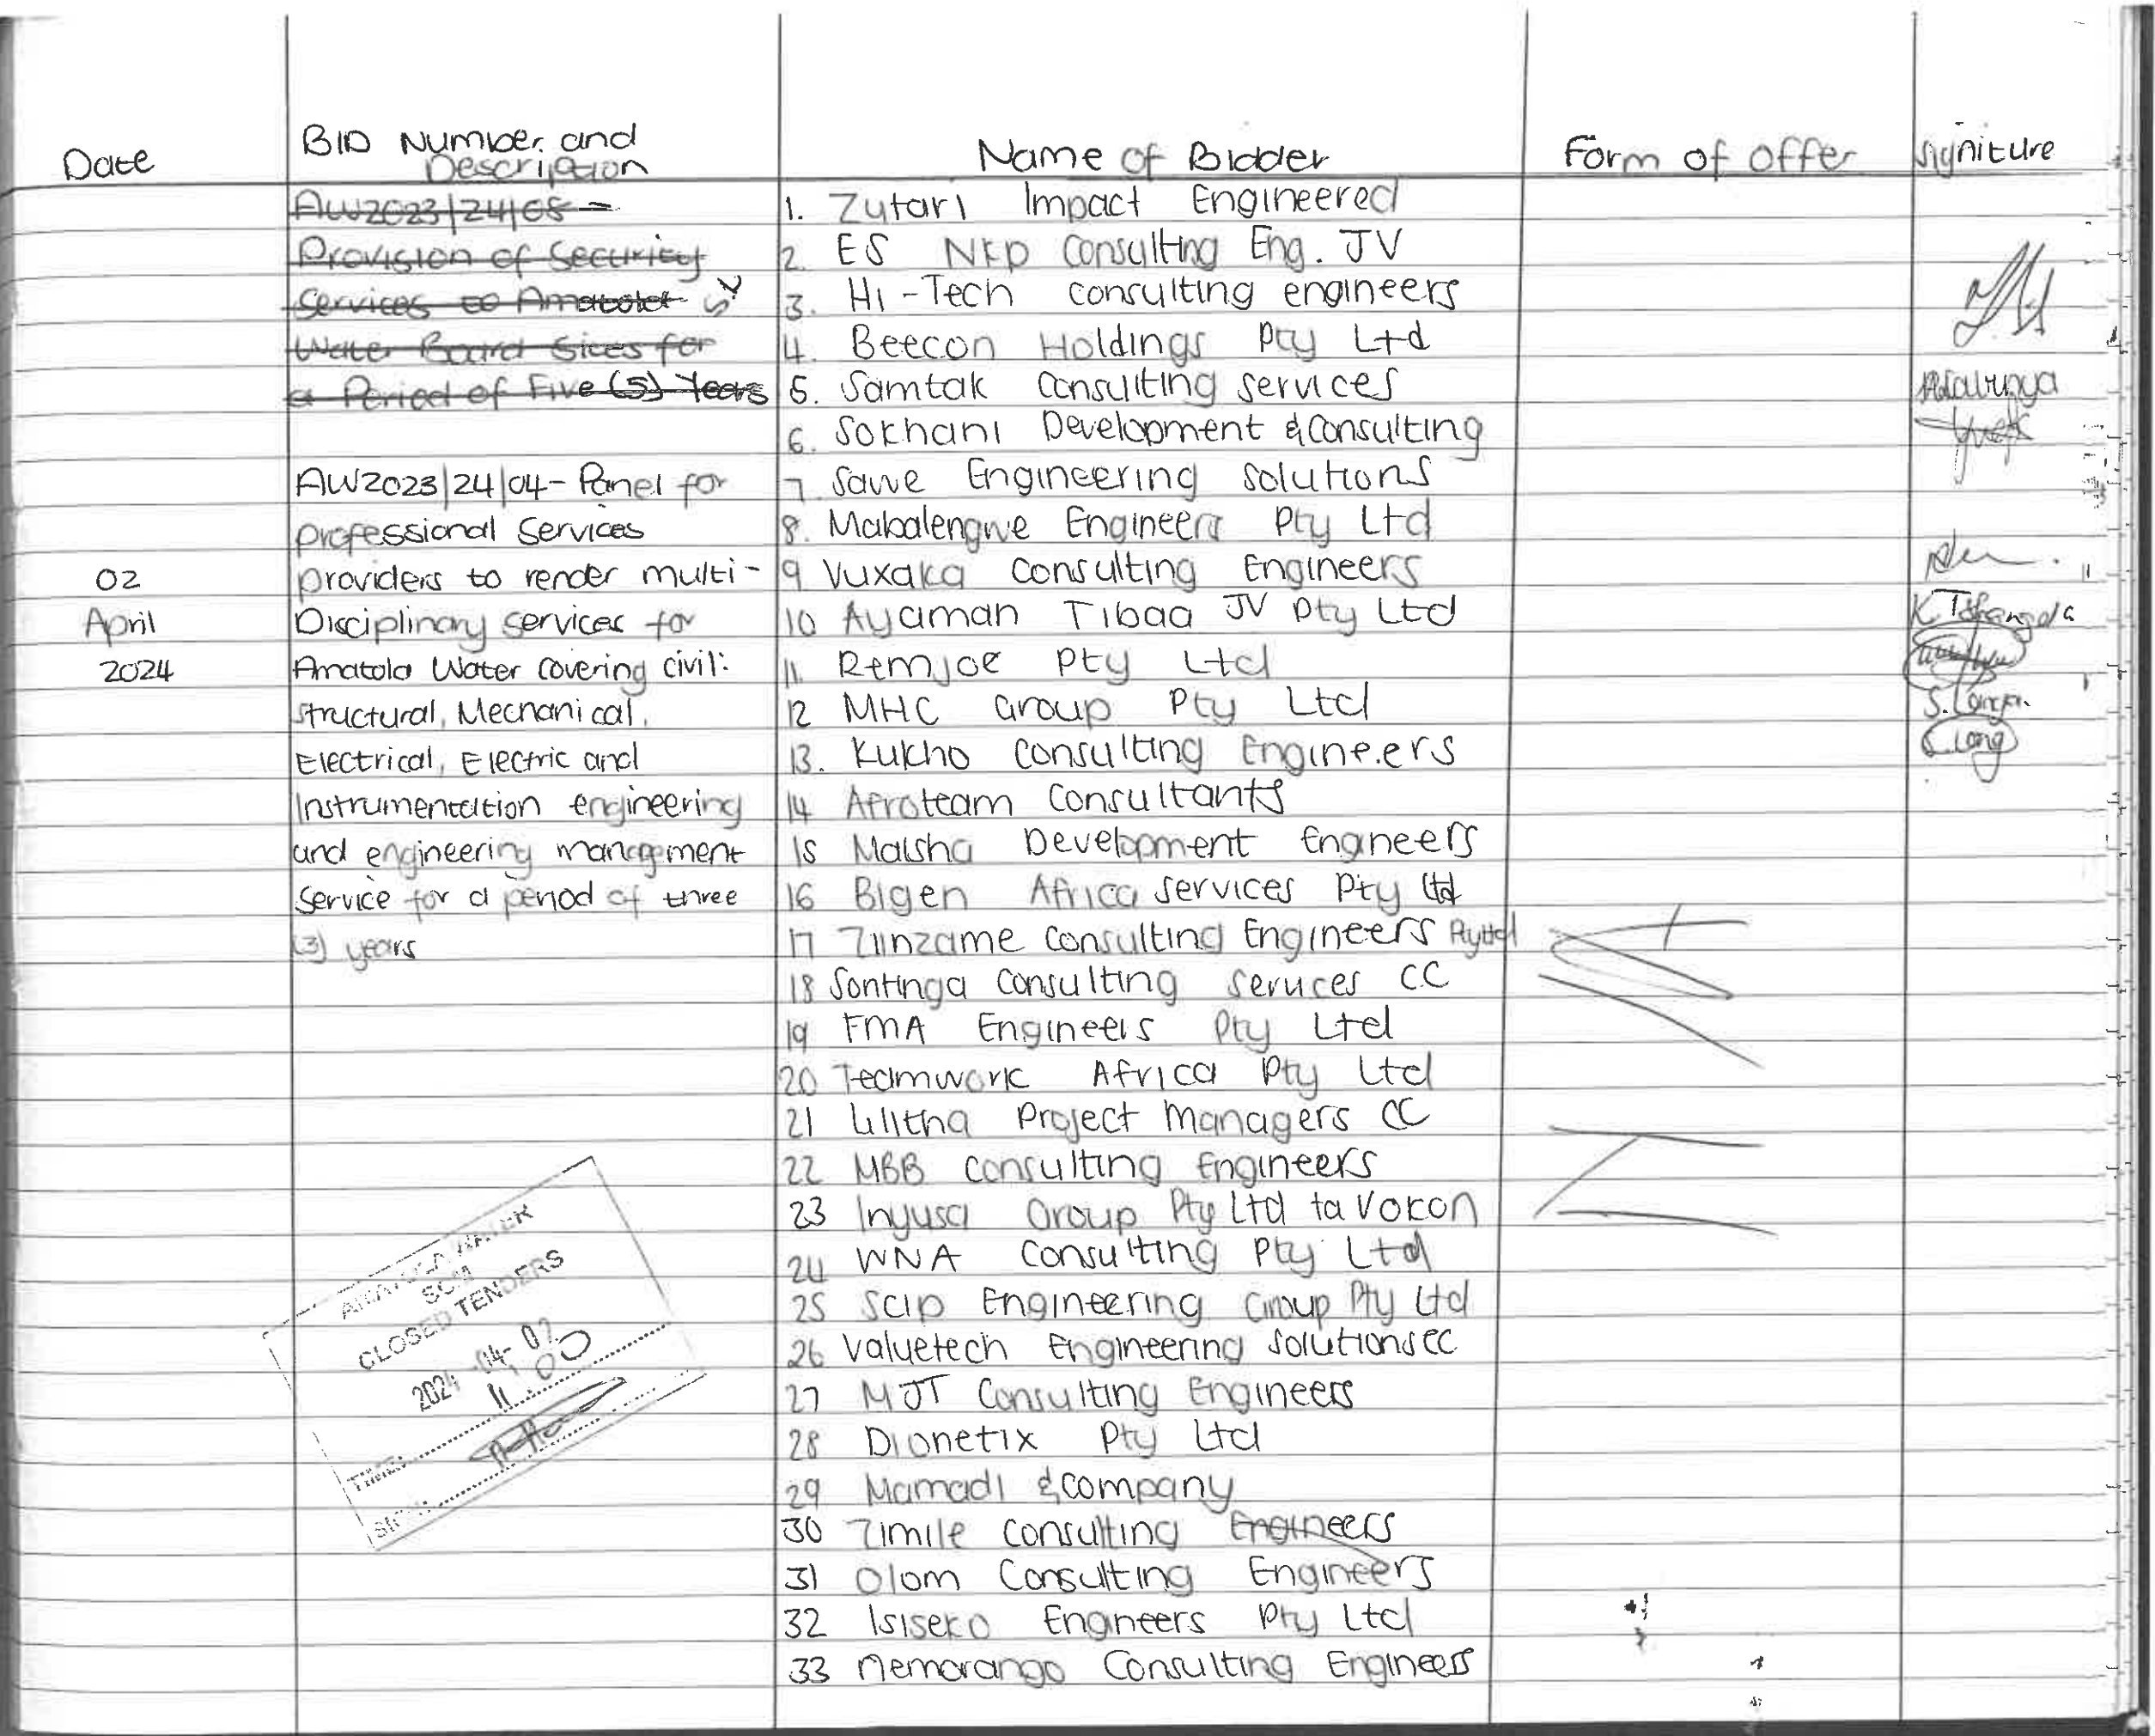 Date
BID Number and
Description
Name of Bidder
Form of offer
Signiture
AW2023|24|08 -
Provision of Security
Services to Amatola
Water Board Sites for
a Period of Five (5) Years
AW2023|24|04 - Panel for
professional Services
providers to render multi-
Disciplinary services for
Amatola Water covering civil:
structural, Mechanical,
Electrical, Electric and
Instrumentation engineering
and engineering management
Service for a period of three
(3) years
02
April
2024
1. Zutari Impact Engineered
2. ES NKP Consulting Eng. JV
3. Hi-Tech consulting engineers
4. Beecon Holdings Pty Ltd
5. Samtak Consulting services
6. Sokhani Development & Consulting
7. Sawe Engineering Solutions
8. Mabalengwe Engineers Pty Ltd
9 Vuxaka Consulting Engineers
10 Ayaman Tibaa JV Pty Ltd
11. Remjoe Pty Ltd
12 MHC Group Pty Ltd
13. Kukho Consulting Engineers
14 Afroteam Consultants
15 Maisha Development Engineers
16 Bigen Africa Services Pty Ltd
17 Ziinzame Consulting Engineers Pty Ltd
18 Sontinga Consulting Services CC
19 FMA Engineers Pty Ltd
20 Teamwork Africa Pty Ltd
21 Lilitha Project Managers CC
22 MBB Consulting Engineers
23 Inyusa Group Pty Ltd ta Vokon
24 WNA Consulting Pty Ltd
25 Scip Engineering Group Pty Ltd
26 Valuetech Engineering Solutions CC
27 MJT Consulting Engineers
28 Dionetix Pty Ltd
29 Mamadi & Company
30 Zimile Consulting Engineers
31 Olom Consulting Engineers
32 Isiseko Engineers Pty Ltd
33 Nemorango Consulting Engineers
K Tshangela
AMATOLA WATER
SCM
CLOSED TENDERS
2024 -04- 02
11:00
TIME:
SIGN: